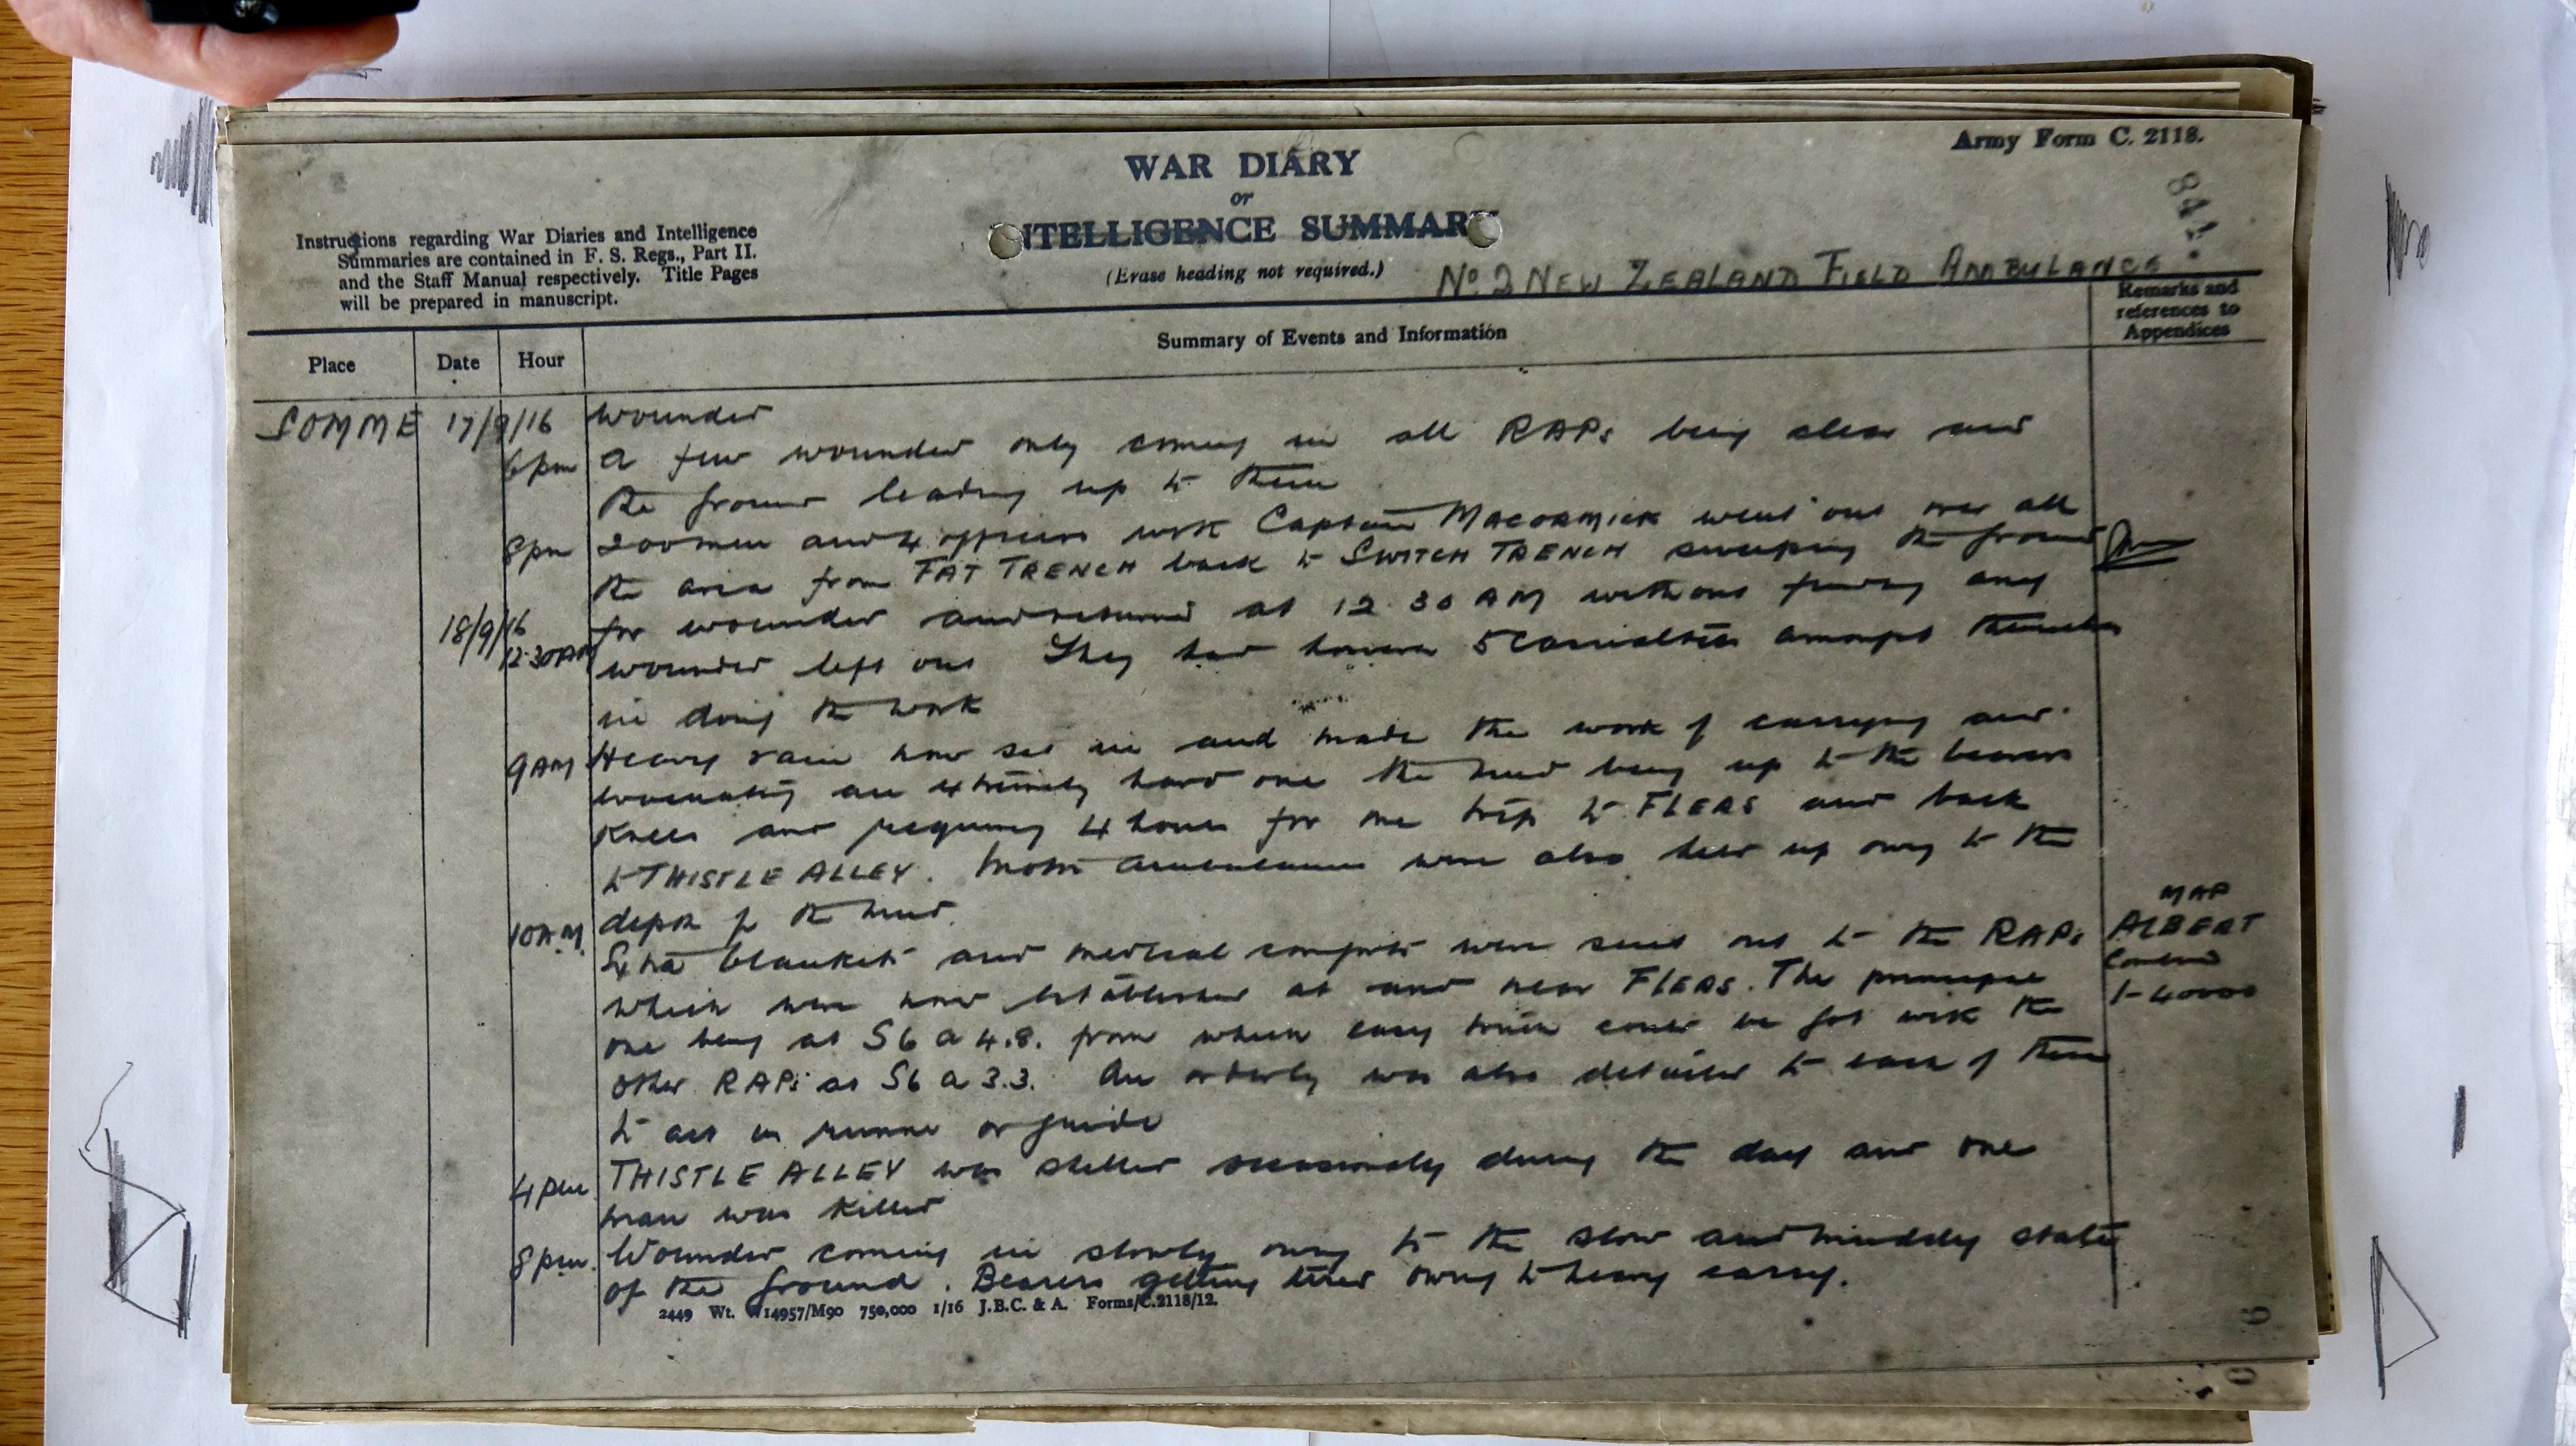 Army Form C. 2118.
WAR DIARY
or
INTELLIGENCE SUMMARY
(Erase heading not required.)
Instructions regarding War Diaries and Intelligence
Summaries are contained in F. S. Regs., Part II.
and the Staff Manual respectively. Title Pages
will be prepared in manuscript.
No. 2 NEW ZEALAND FIELD AMBULANCE
Place
Date
Hour
Summary of Events and Information
Remarks and
references to
Appendices
SOMME 17/9/16 wounded
6pm A few wounded only coming in all RAPs being clear and
the ground leading up to them
8pm 200 men and 4 officers with Captain MACORMICK went out over all
the area from FAT TRENCH back to SWITCH TRENCH sweeping the ground
for wounded and returned at 12.30 AM without finding any
18/9/16 12.30AM wounded left out They had however 5 casualties amongst themselves
in doing the work
9AM Heavy rain now set in and made the work of carrying and
evacuating an extremely hard one the mud being up to the bearers
knees and requiring 4 hours for one trip to FLERS and back
to THISTLE ALLEY. Motor Ambulances were also held up owing to the
depth of the mud.
10AM Extra blankets and medical comforts were sent out to the RAPs
which were now established at and near FLERS. The principal
one being at S6 a 4.8. from which easy touch could be got with the
other RAPs at S6 a 3.3. An orderly was also detailed to each of these
to act as runner or guide
MAP
ALBERT
Combined
1-40000
4pm THISTLE ALLEY was shelled occasionally during the day and one
man was killed
8pm. Wounded coming in slowly owing to the slow and muddy state
of the ground. Bearers getting tired owing to heavy carry.
2449 Wt. W14957/M90 750,000 1/16 J.B.C. & A. Forms/C.2118/12.